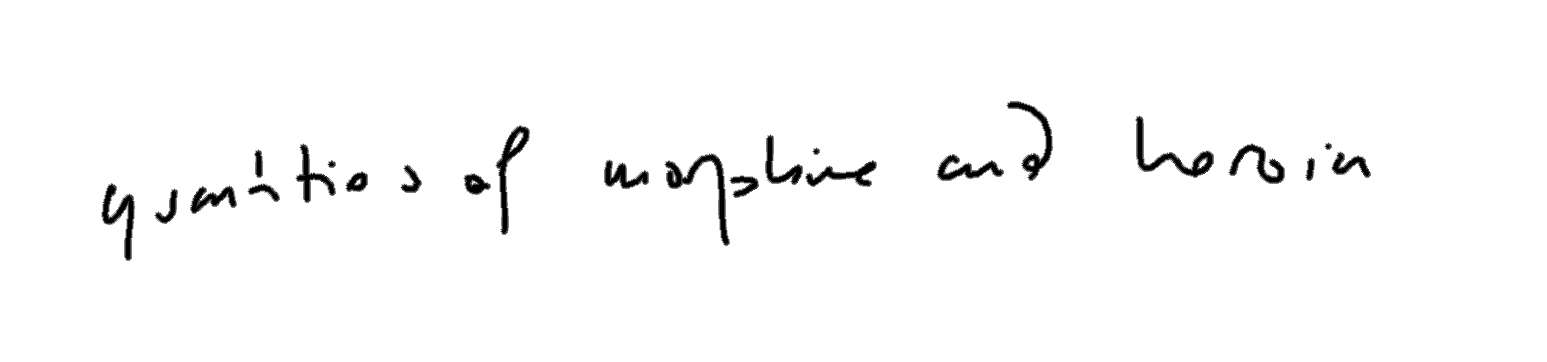 quantities of morphine and heroin